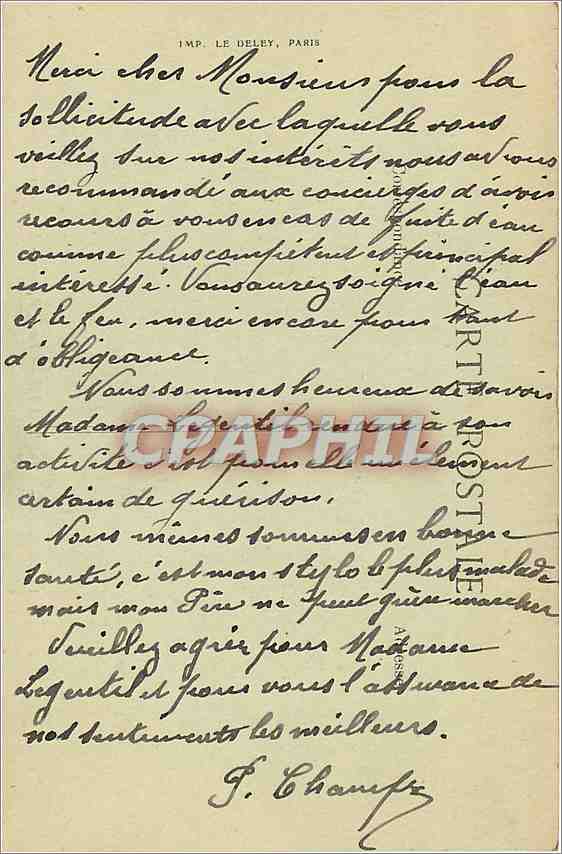 IMP. LE DELEY, PARIS
Merci cher Monsieur pour la
sollicitude avec laquelle vous
veillez sur nos intérêts nous avions
recommandé aux concierges d'avoir
recours à vous en cas de fuite d'eau
comme plus compétent et principal
intéressé. Vous avez soigné l'eau
et le feu, merci encore pour tant
d'obligeance.
Nous sommes heureux de savoir
Madame Legentil rendue à son
activité c'est pour elle un élément
certain de guérison.
Nous mêmes sommes en bonne
santé, c'est mon stylo le plus malade
mais mon Père ne peut guère marcher
Veuillez agréer pour Madame
Legentil et pour vous l'assurance de
nos sentiments les meilleurs.
P.
Correspondance
CARTE POSTALE
Adresse
CPAPHIL